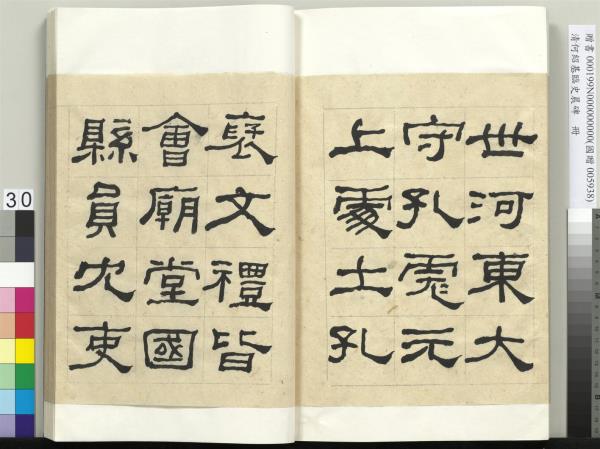 贈書 000199N000000000(國贈 005938)
清何紹基臨史晨碑 冊
世河東大
守孔彪元
上處士孔
褒文禮皆
會廟堂國
縣員冗吏
30